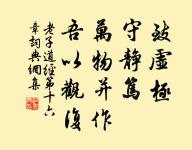 致虛極
守靜篤
萬物并作
吾以觀復
老子道經第十六
章詞典網集